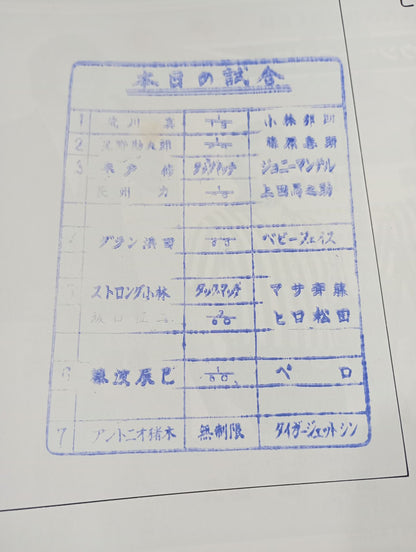 本日の試合
1 荒川 真 小林邦昭
2 星野勘太郎 藤原喜明
3 木戸 修 タッグマッチ ジョニーマンテル
長州 力 上田馬之助
グラン浜田 ベビーフェイス
ストロング小林 タッグマッチ マサ齊藤
坂口征二 ヒロ松田
6 藤波辰巳 ペロ
7 アントニオ猪木 無制限 タイガージェットシン